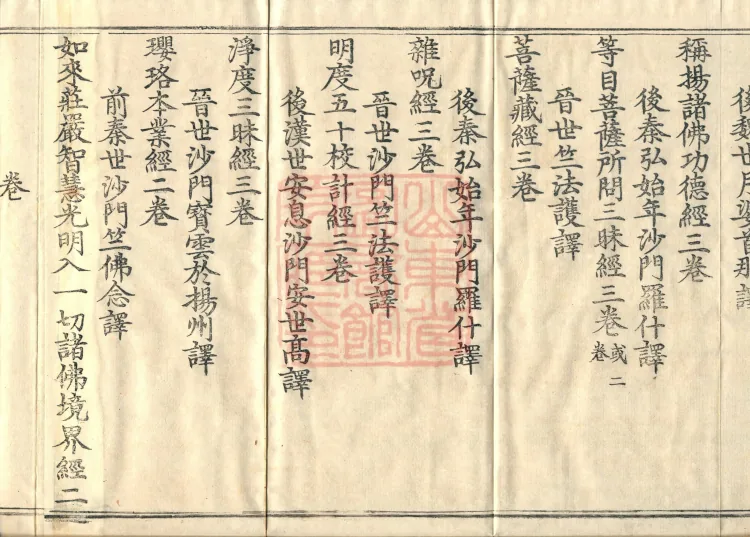 後魏世月婆首那譯
稱揚諸佛功德經三卷
後秦弘始年沙門羅什譯
等目菩薩所問三昧經三卷 或二卷
晉世竺法護譯
菩薩藏經三卷
後秦弘始年沙門羅什譯
雜呪經三卷
晉世沙門竺法護譯
明度五十校計經三卷
後漢世安息沙門安世髙譯
淨度三昧經三卷
晉世沙門寶雲於揚州譯
瓔珞本業經二卷
前秦世沙門竺佛念譯
如來莊嚴智慧光明入一切諸佛境界經二
卷